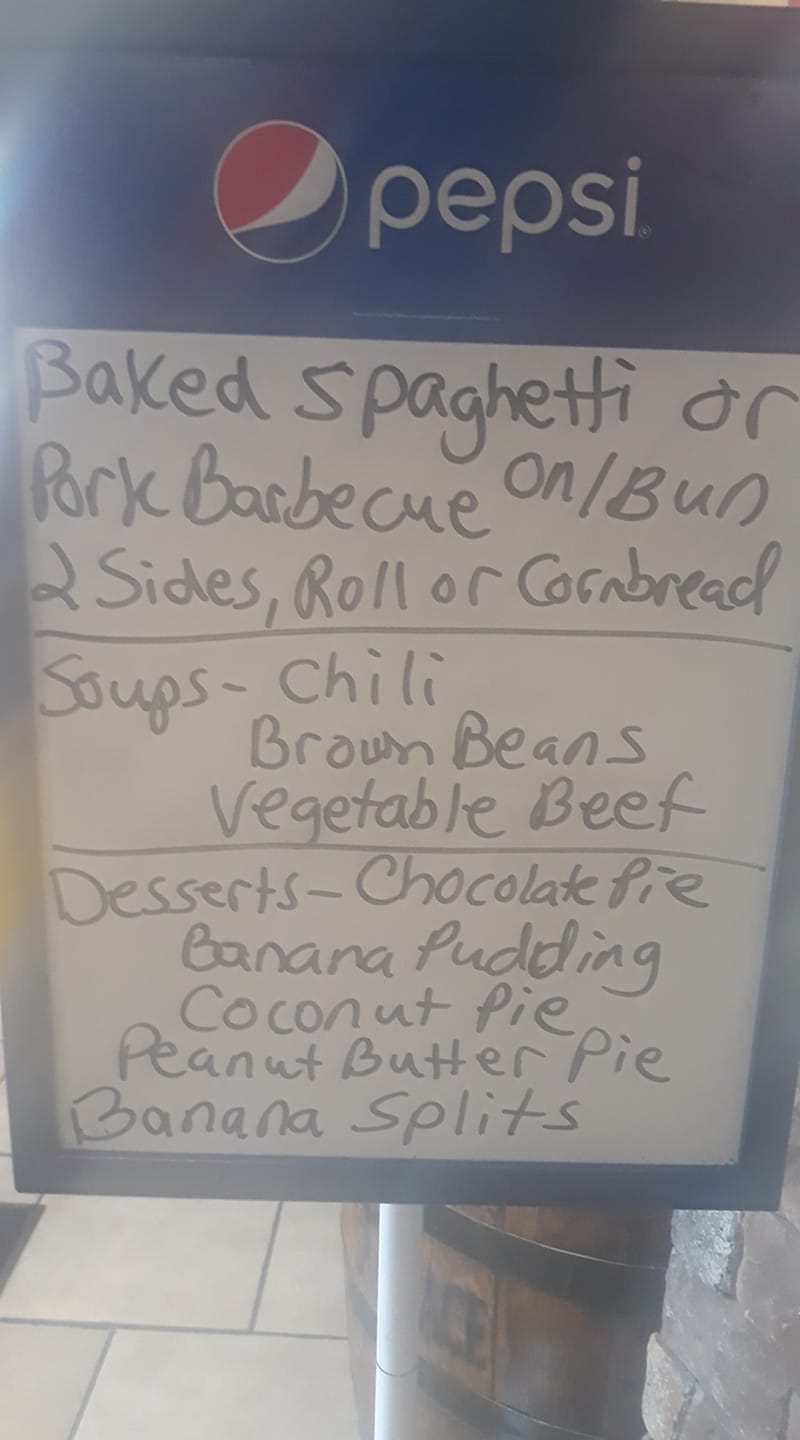 pepsi
Baked Spaghetti or
Pork Barbecue on/Bun
2 Sides, Roll or Cornbread
Soups- Chili
Brown Beans
Vegetable Beef
Desserts- Chocolate Pie
Banana Pudding
Coconut Pie
Peanut Butter Pie
Banana Splits